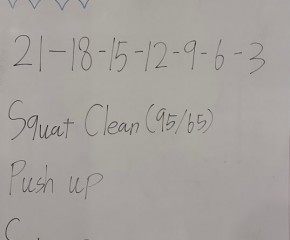 21-18-15-12-9-6-3
Squat Clean (95/65)
Push up